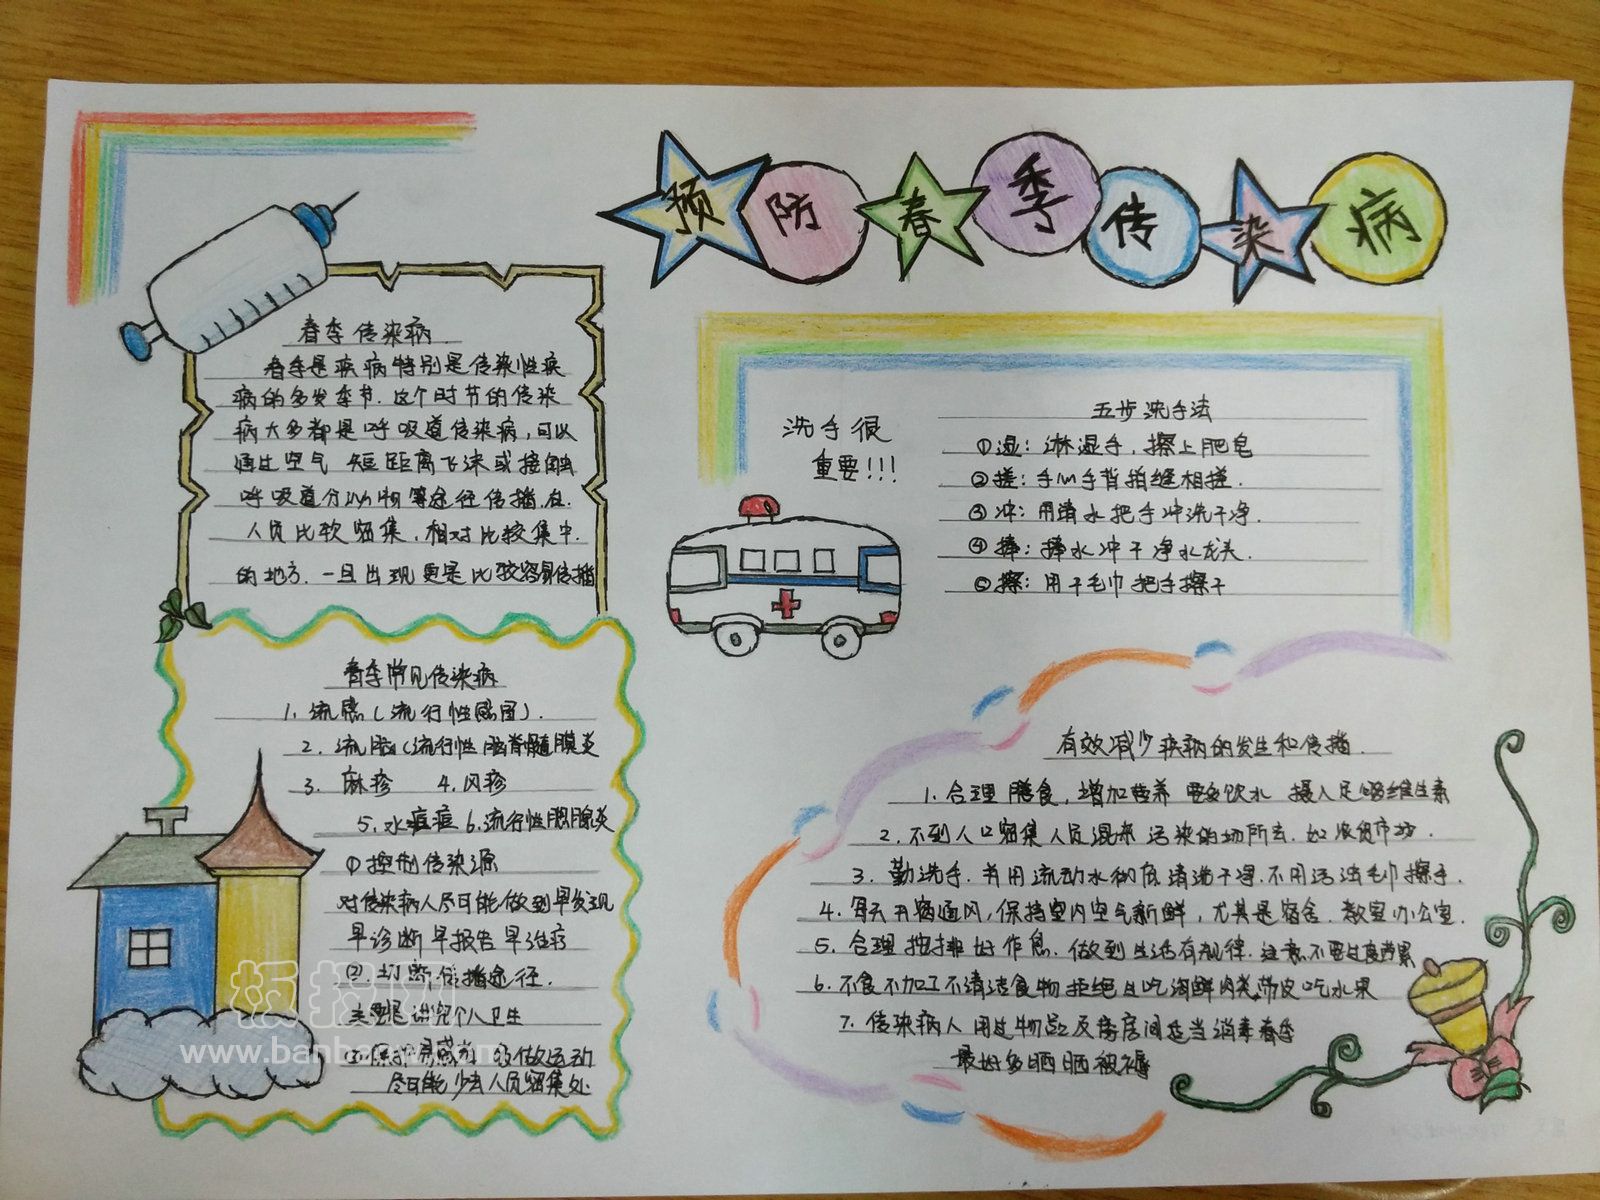 预防春季传染病
春季传染病
春季是疾病特别是传染性疾
病的多发季节.这个时节的传染
病大多都是呼吸道传染病,可以
通过空气 短距离飞沫或接触
呼吸道分泌物等途径传播.在
人员比较密集,相对比较集中.
的地方.一旦出现更是比较容易传播
春季常见传染病
1、流感(流行性感冒).
2.流脑(流行性脑脊髓膜炎
3、麻疹 4.风疹
5、水痘 6.流行性腮腺炎
①控制传染源
对传染病人尽可能做到早发现
早诊断早报告早治疗
②打断传播途径.
主要是讲究个人卫生
③保护易感 做运动
尽可能少去人员密集处
洗手很
重要!!!
五步洗手法
①湿:淋湿手,擦上肥皂
②搓:手心手背指缝相搓.
③冲:用清水把手冲洗干净.
④捧:捧水冲干净水龙头.
⑤擦:用干毛巾把手擦干
有效减少疾病的发生和传播.
1.合理膳食,增加营养 要多饮水 摄入足够维生素
2.不到人口密集人员混杂 污染的场所去.如农贸市场.
3.勤洗手.并用流动水彻底清洗干净.不用污浊毛巾擦手.
4.每天开窗通风,保持室内空气新鲜,尤其是宿舍.教室办公室.
5.合理安排好作息.做到生活有规律.注意不要过度劳累
6.不食不加工不清洁食物拒绝生吃海鲜肉类,带皮吃水果
7.传染病人用过物品及房间适当消毒春季
最好多晒晒被褥
板报网
www.banbaow.com